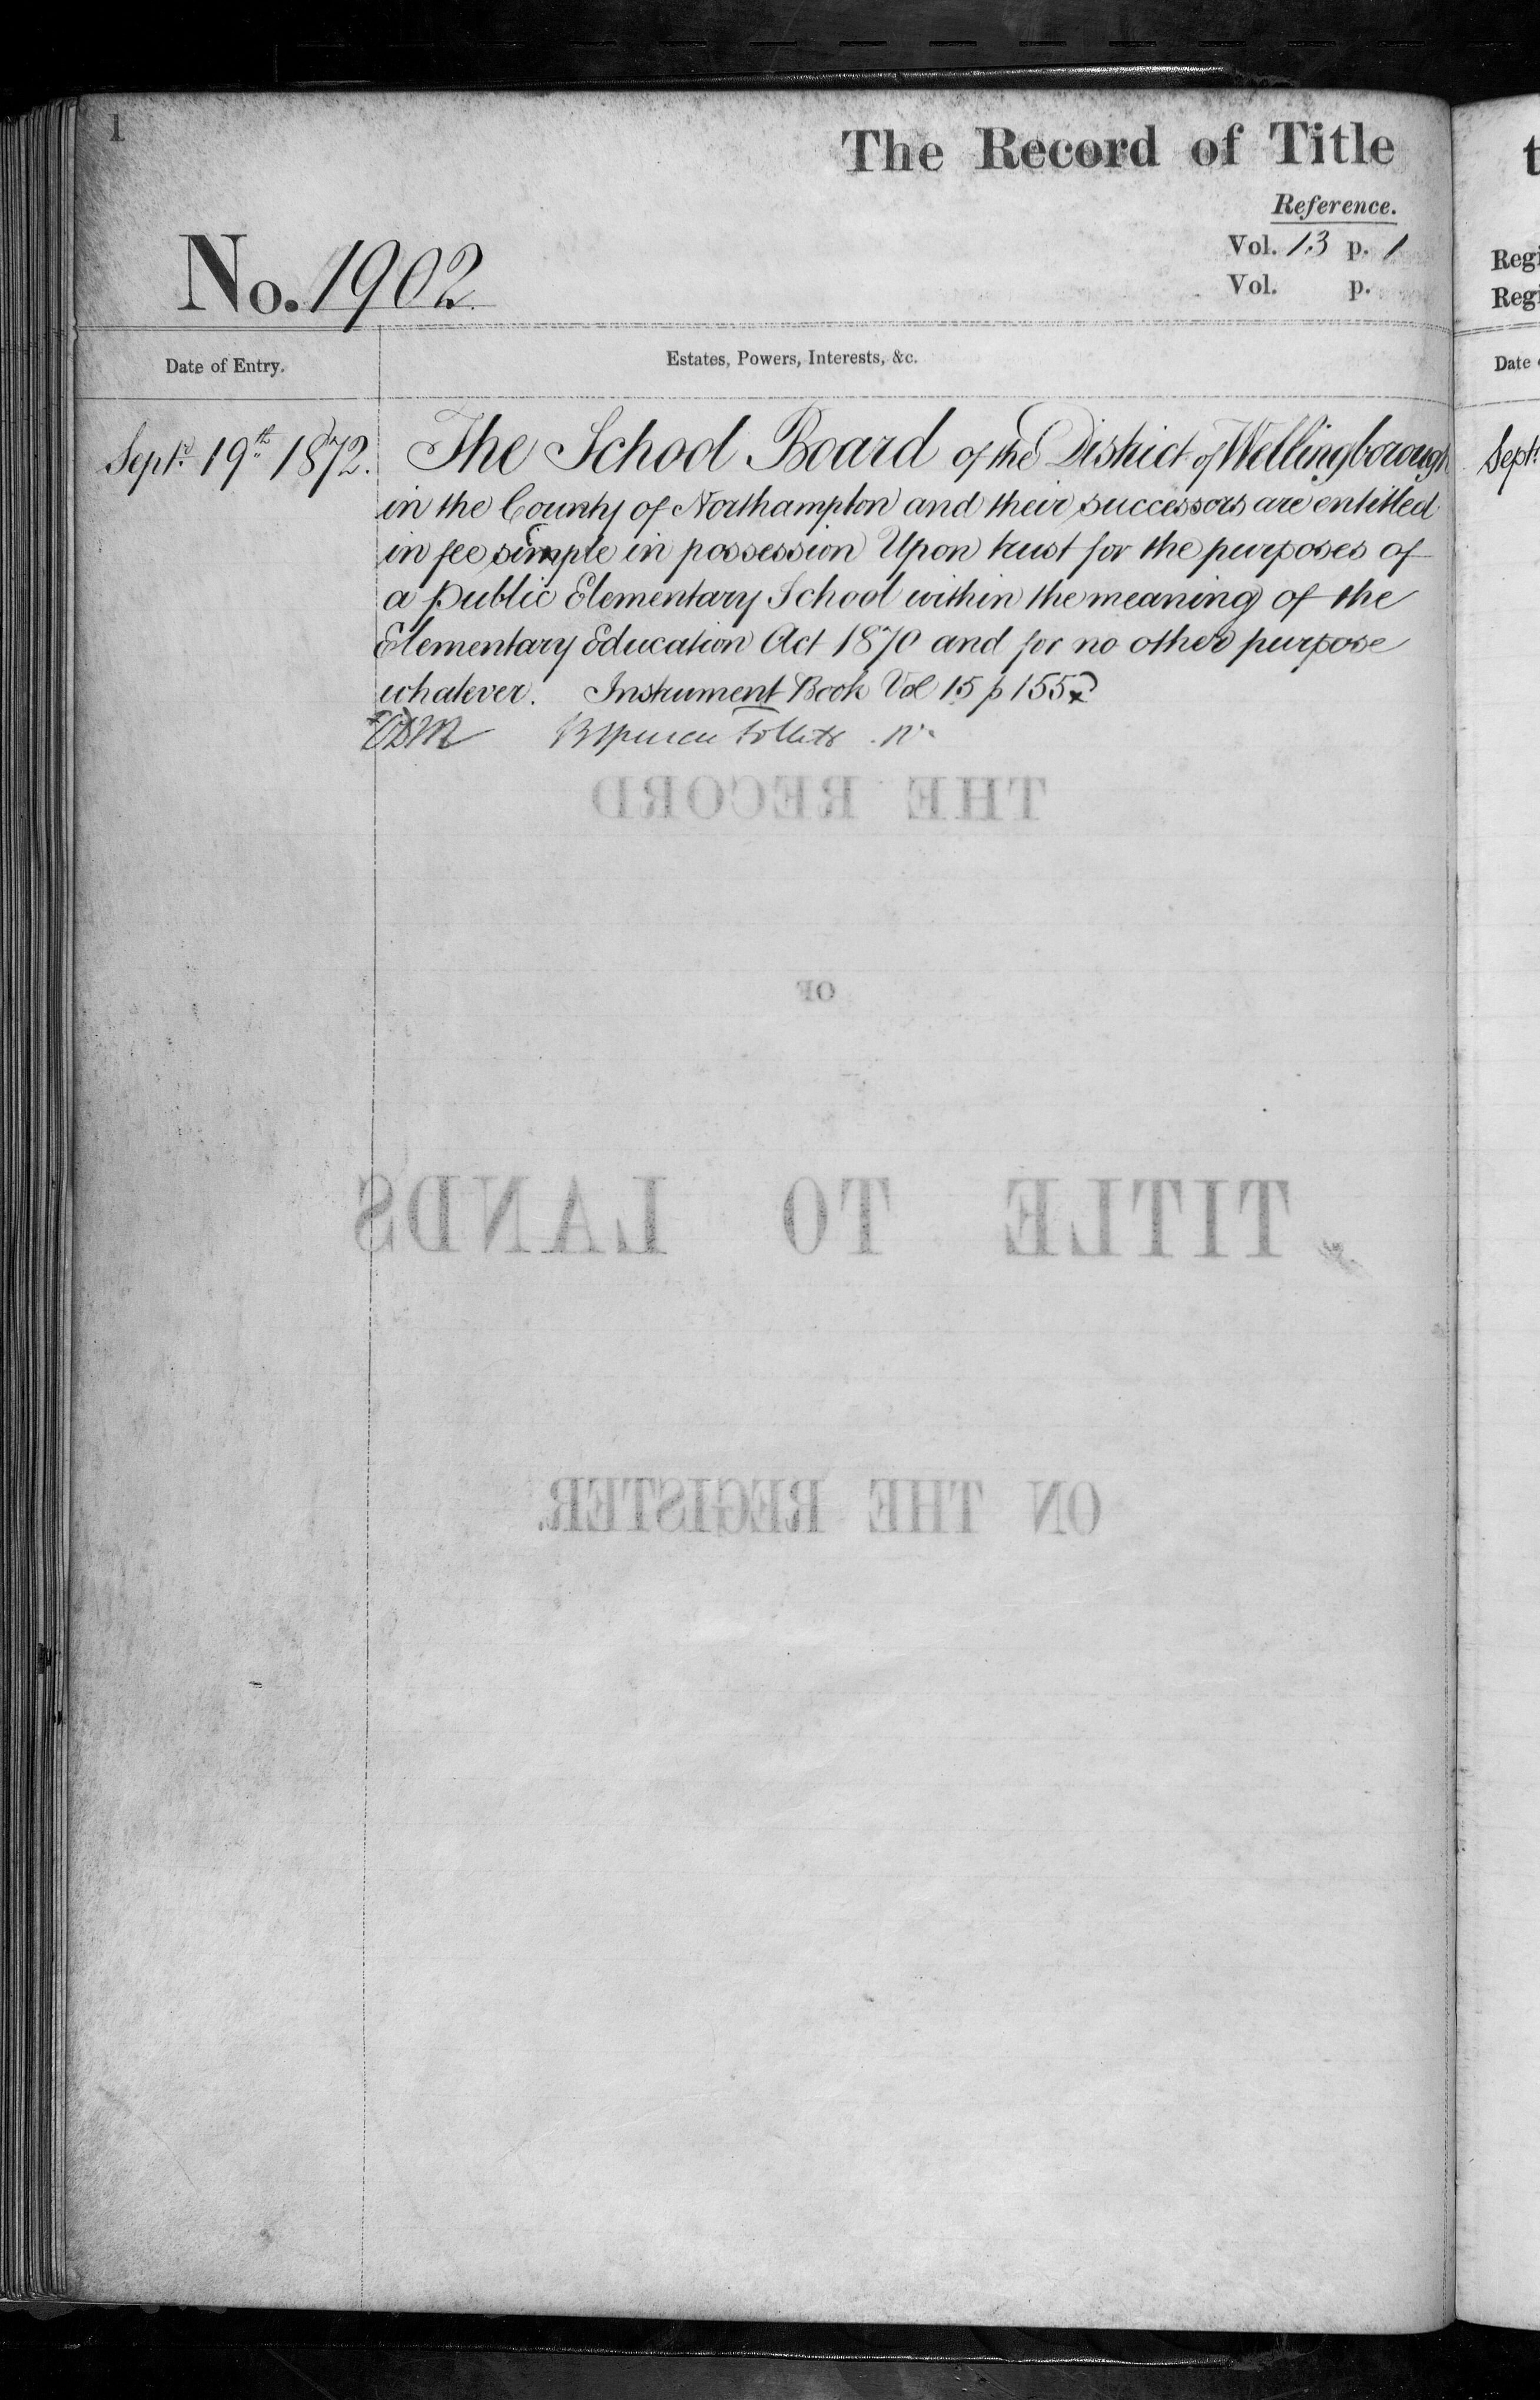 1
The Record of Title
Reference.
Vol. 13 p. 1
Vol. p.
No. 1902
Date of Entry.
Estates, Powers, Interests, &c.
Septr. 19th 1872. The School Board of the District of Wellingborough
in the County of Northampton and their successors are entitled
in fee simple in possession Upon trust for the purposes of
a Public Elementary School within the meaning of the
Elementary Education Act 1870 and for no other purpose
whatever. Instrument Book Vol 15 p 155
THE RECORD
OF
TITLE TO LANDS
ON THE REGISTER.
t
Regi
Regi
Date
Sept